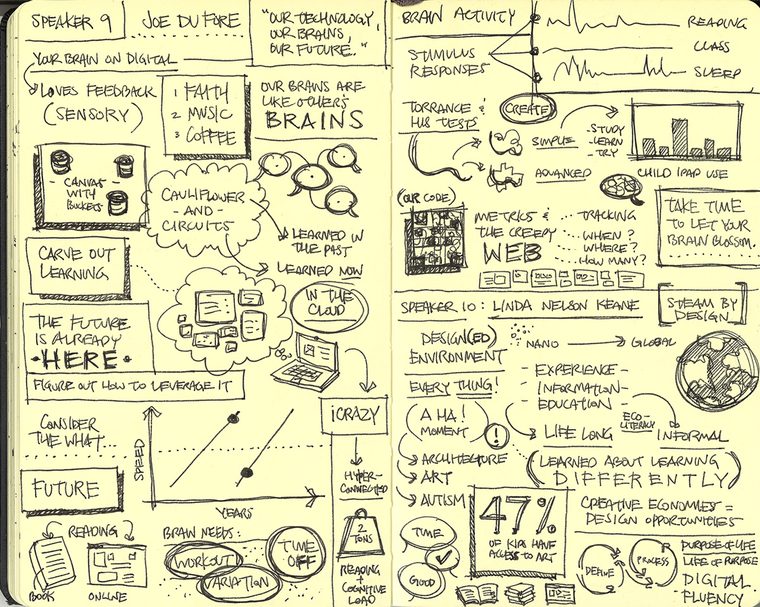 SPEAKER 9
JOE DUFORE
"OUR TECHNOLOGY,
OUR BRAINS,
OUR FUTURE."
YOUR BRAIN ON DIGITAL
LOVES FEEDBACK
(SENSORY)
1 FAITH
2 MUSIC
3 COFFEE
OUR BRAINS ARE
LIKE OTHER'S
BRAINS
- CANVAS -
WITH
BUCKETS
CAULIFLOWER
- AND -
CIRCUITS
LEARNED IN
THE PAST
LEARNED NOW
CARVE OUT
LEARNING
IN THE
CLOUD
THE FUTURE
IS ALREADY
·HERE·
FIGURE OUT HOW TO LEVERAGE IT
CONSIDER
THE WHAT...
SPEED
YEARS
iCRAZY
HYPER-
CONNECTED
2
TONS
READING
+
COGNITIVE
LOAD
FUTURE
READING
BOOK
ONLINE
BRAIN NEEDS:
WORKOUT
VARIATION
TIME
OFF
BRAIN ACTIVITY
STIMULUS
RESPONSES
READING
CLASS
SLEEP
TORRANCE &
HIS TESTS
CREATE
SIMPLE
ADVANCED
- STUDY
- LEARN
- TRY
CHILD IPAD USE
(QR CODE)
METRICS &
THE CREEPY
WEB
... TRACKING
... WHEN?
... WHERE?
... HOW MANY?
TAKE TIME
TO LET YOUR
BRAIN BLOSSOM.
SPEAKER 10: LINDA NELSON KEANE
[STEAM BY
DESIGN]
DESIGN(ED)
ENVIRONMENT
NANO
GLOBAL
EVERY THING!
- EXPERIENCE-
- INFORMATION-
- EDUCATION
A HA!
MOMENT
!
LIFE LONG
ECO-
LITERACY
INFORMAL
ARCHITECTURE
ART
AUTISM
(LEARNED ABOUT LEARNING
DIFFERENTLY)
47%
OF KIDS HAVE
ACCESS TO ART
CREATIVE ECONOMIES =
DESIGN OPPORTUNITIES
TIME
GOOD
DEFINE
PROCESS
PURPOSE OF LIFE
LIFE OF PURPOSE
DIGITAL
FLUENCY